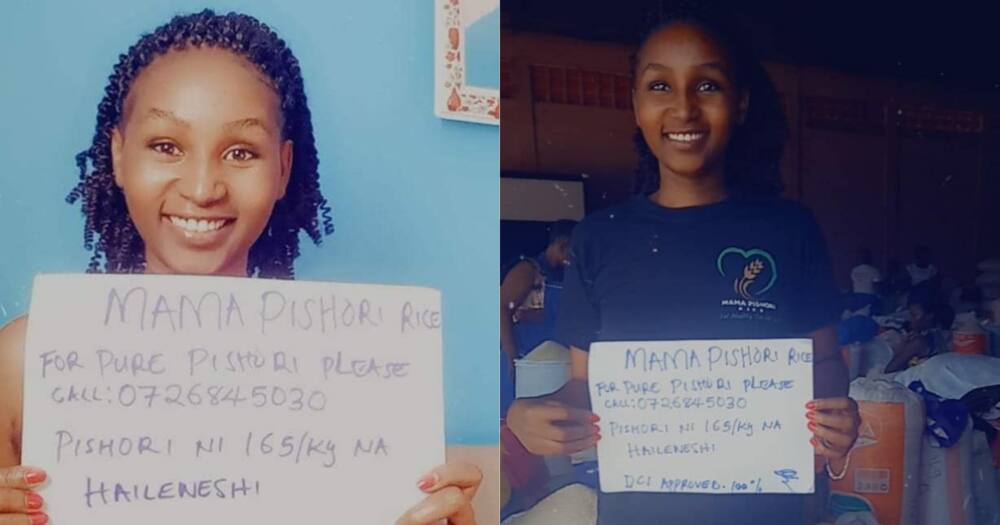 MAMA PISHORI RICE
FOR PURE PISHORI PLEASE
CALL: 0726845030
PISHORI NI 165/Kg NA
HAILENESHI
MAMA PISHORI
RICE
MAMA PISHORI RICE
FOR PURE PISHORI PLEASE
CALL: 0726845030
PISHORI NI 165/Kg NA
HAILENESHI
DCI APPROVED. 100%